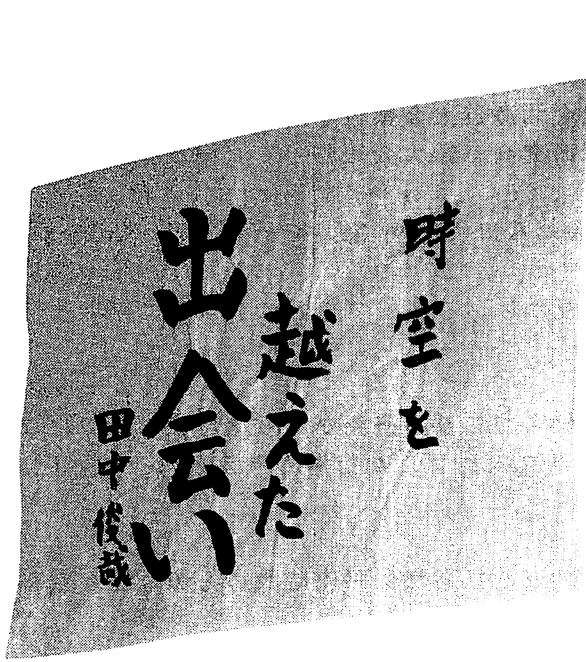 時空を
越えた
出会い
田中俊哉